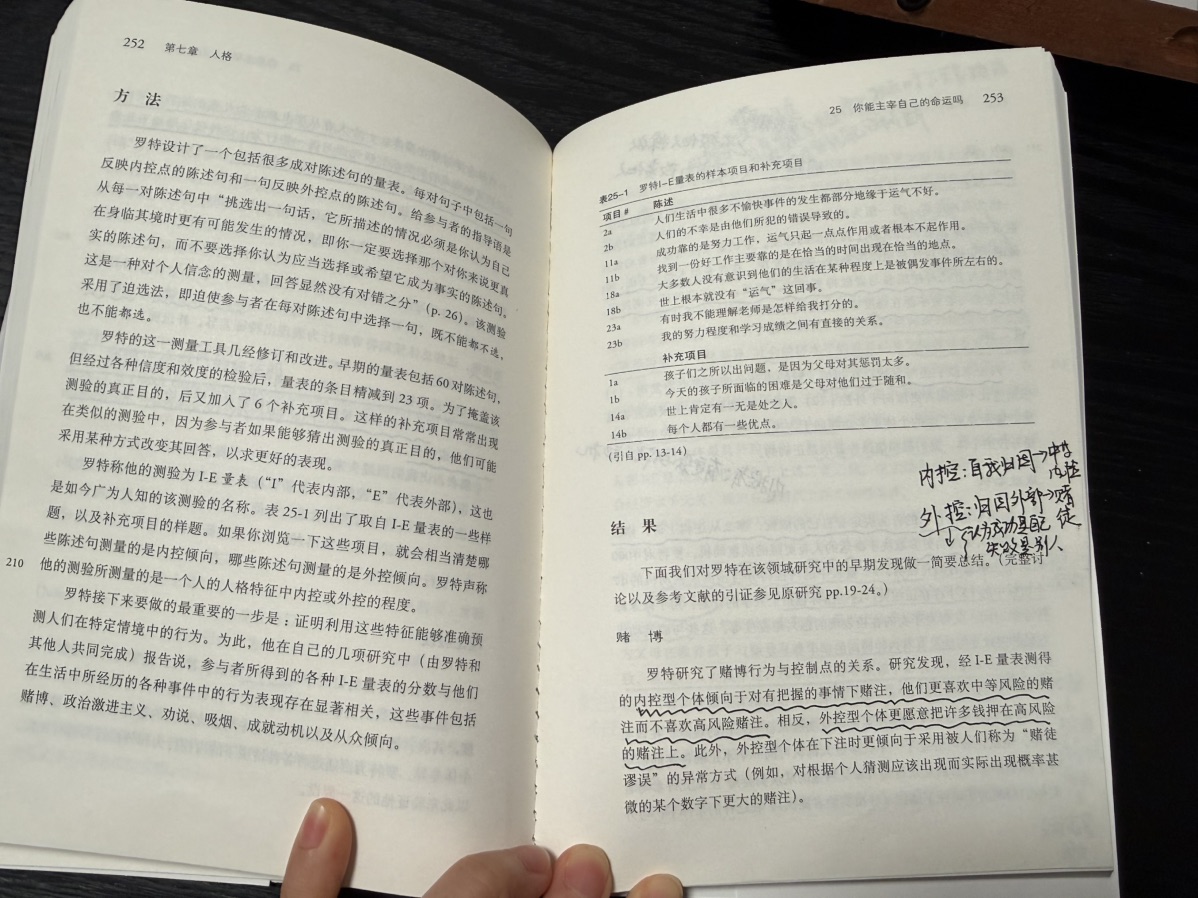 252 第七章 人格
方 法
罗特设计了一个包括很多成对陈述句的量表。每对句子中包括一句
反映内控点的陈述句和一句反映外控点的陈述句。给参与者的指导语是
从每一对陈述句中“挑选出一句话，它所描述的情况必须是你认为自己
在身临其境时更有可能发生的情况，即你一定要选择那个对你来说更真
实的陈述句，而不要选择你认为应当选择或希望它成为事实的陈述句。
这是一种对个人信念的测量，回答显然没有对错之分”(p. 26)。该测验
采用了迫选法，即迫使参与者在每对陈述句中选择一句，既不能都不选，
也不能都选。
罗特的这一测量工具几经修订和改进。早期的量表包括60对陈述句，
但经过各种信度和效度的检验后，量表的条目精减到 23 项。为了掩盖该
测验的真正目的，后又加入了 6 个补充项目。这样的补充项目常常出现
在类似的测验中，因为参与者如果能够猜出测验的真正目的，他们可能
采用某种方式改变其回答，以求更好的表现。
罗特称他的测验为 I-E 量表（“I”代表内部，“E”代表外部），这也
是如今广为人知的该测验的名称。表 25-1 列出了取自 I-E 量表的一些样
题，以及补充项目的样题。如果你浏览一下这些项目，就会相当清楚哪
些陈述句测量的是内控倾向，哪些陈述句测量的是外控倾向。罗特声称
210 他的测验所测量的是一个人的人格特征中内控或外控的程度。
罗特接下来要做的最重要的一步是：证明利用这些特征能够准确预
测人们在特定情境中的行为。为此，他在自己的几项研究中（由罗特和
其他人共同完成）报告说，参与者所得到的各种 I-E 量表的分数与他们
在生活中所经历的各种事件中的行为表现存在显著相关，这些事件包括
赌博、政治激进主义、劝说、吸烟、成就动机以及从众倾向。
25 你能主宰自己的命运吗 253
表25-1 罗特I-E量表的样本项目和补充项目
项目# 陈述
2a 人们生活中很多不愉快事件的发生都部分地缘于运气不好。
2b 人们的不幸是由他们所犯的错误导致的。
11a 成功靠的是努力工作，运气只起一点点作用或者根本不起作用。
11b 找到一份好工作主要靠的是在恰当的时间出现在恰当的地点。
18a 大多数人没有意识到他们的生活在某种程度上是被偶发事件所左右的。
18b 世上根本就没有“运气”这回事。
23a 有时我不能理解老师是怎样给我打分的。
23b 我的努力程度和学习成绩之间有直接的关系。
补充项目
1a 孩子们之所以出问题，是因为父母对其惩罚太多。
1b 今天的孩子所面临的困难是父母对他们过于随和。
14a 世上肯定有一无是处之人。
14b 每个人都有一些优点。
(引自 pp. 13-14)
内控：自我归因→中等
内控
外控：归因外部→赌
徒
↓认为成功是自己
失败是别人
结 果
下面我们对罗特在该领域研究中的早期发现做一简要总结。（完整讨
论以及参考文献的引证参见原研究 pp.19-24。）
赌 博
罗特研究了赌博行为与控制点的关系。研究发现，经 I-E 量表测得
的内控型个体倾向于对有把握的事情下赌注，他们更喜欢中等风险的赌
注而不喜欢高风险赌注。相反，外控型个体更愿意把许多钱押在高风险
的赌注上。此外，外控型个体在下注时更倾向于采用被人们称为“赌徒
谬误”的异常方式（例如，对根据个人猜测应该出现而实际出现概率甚
微的某个数字下更大的赌注）。